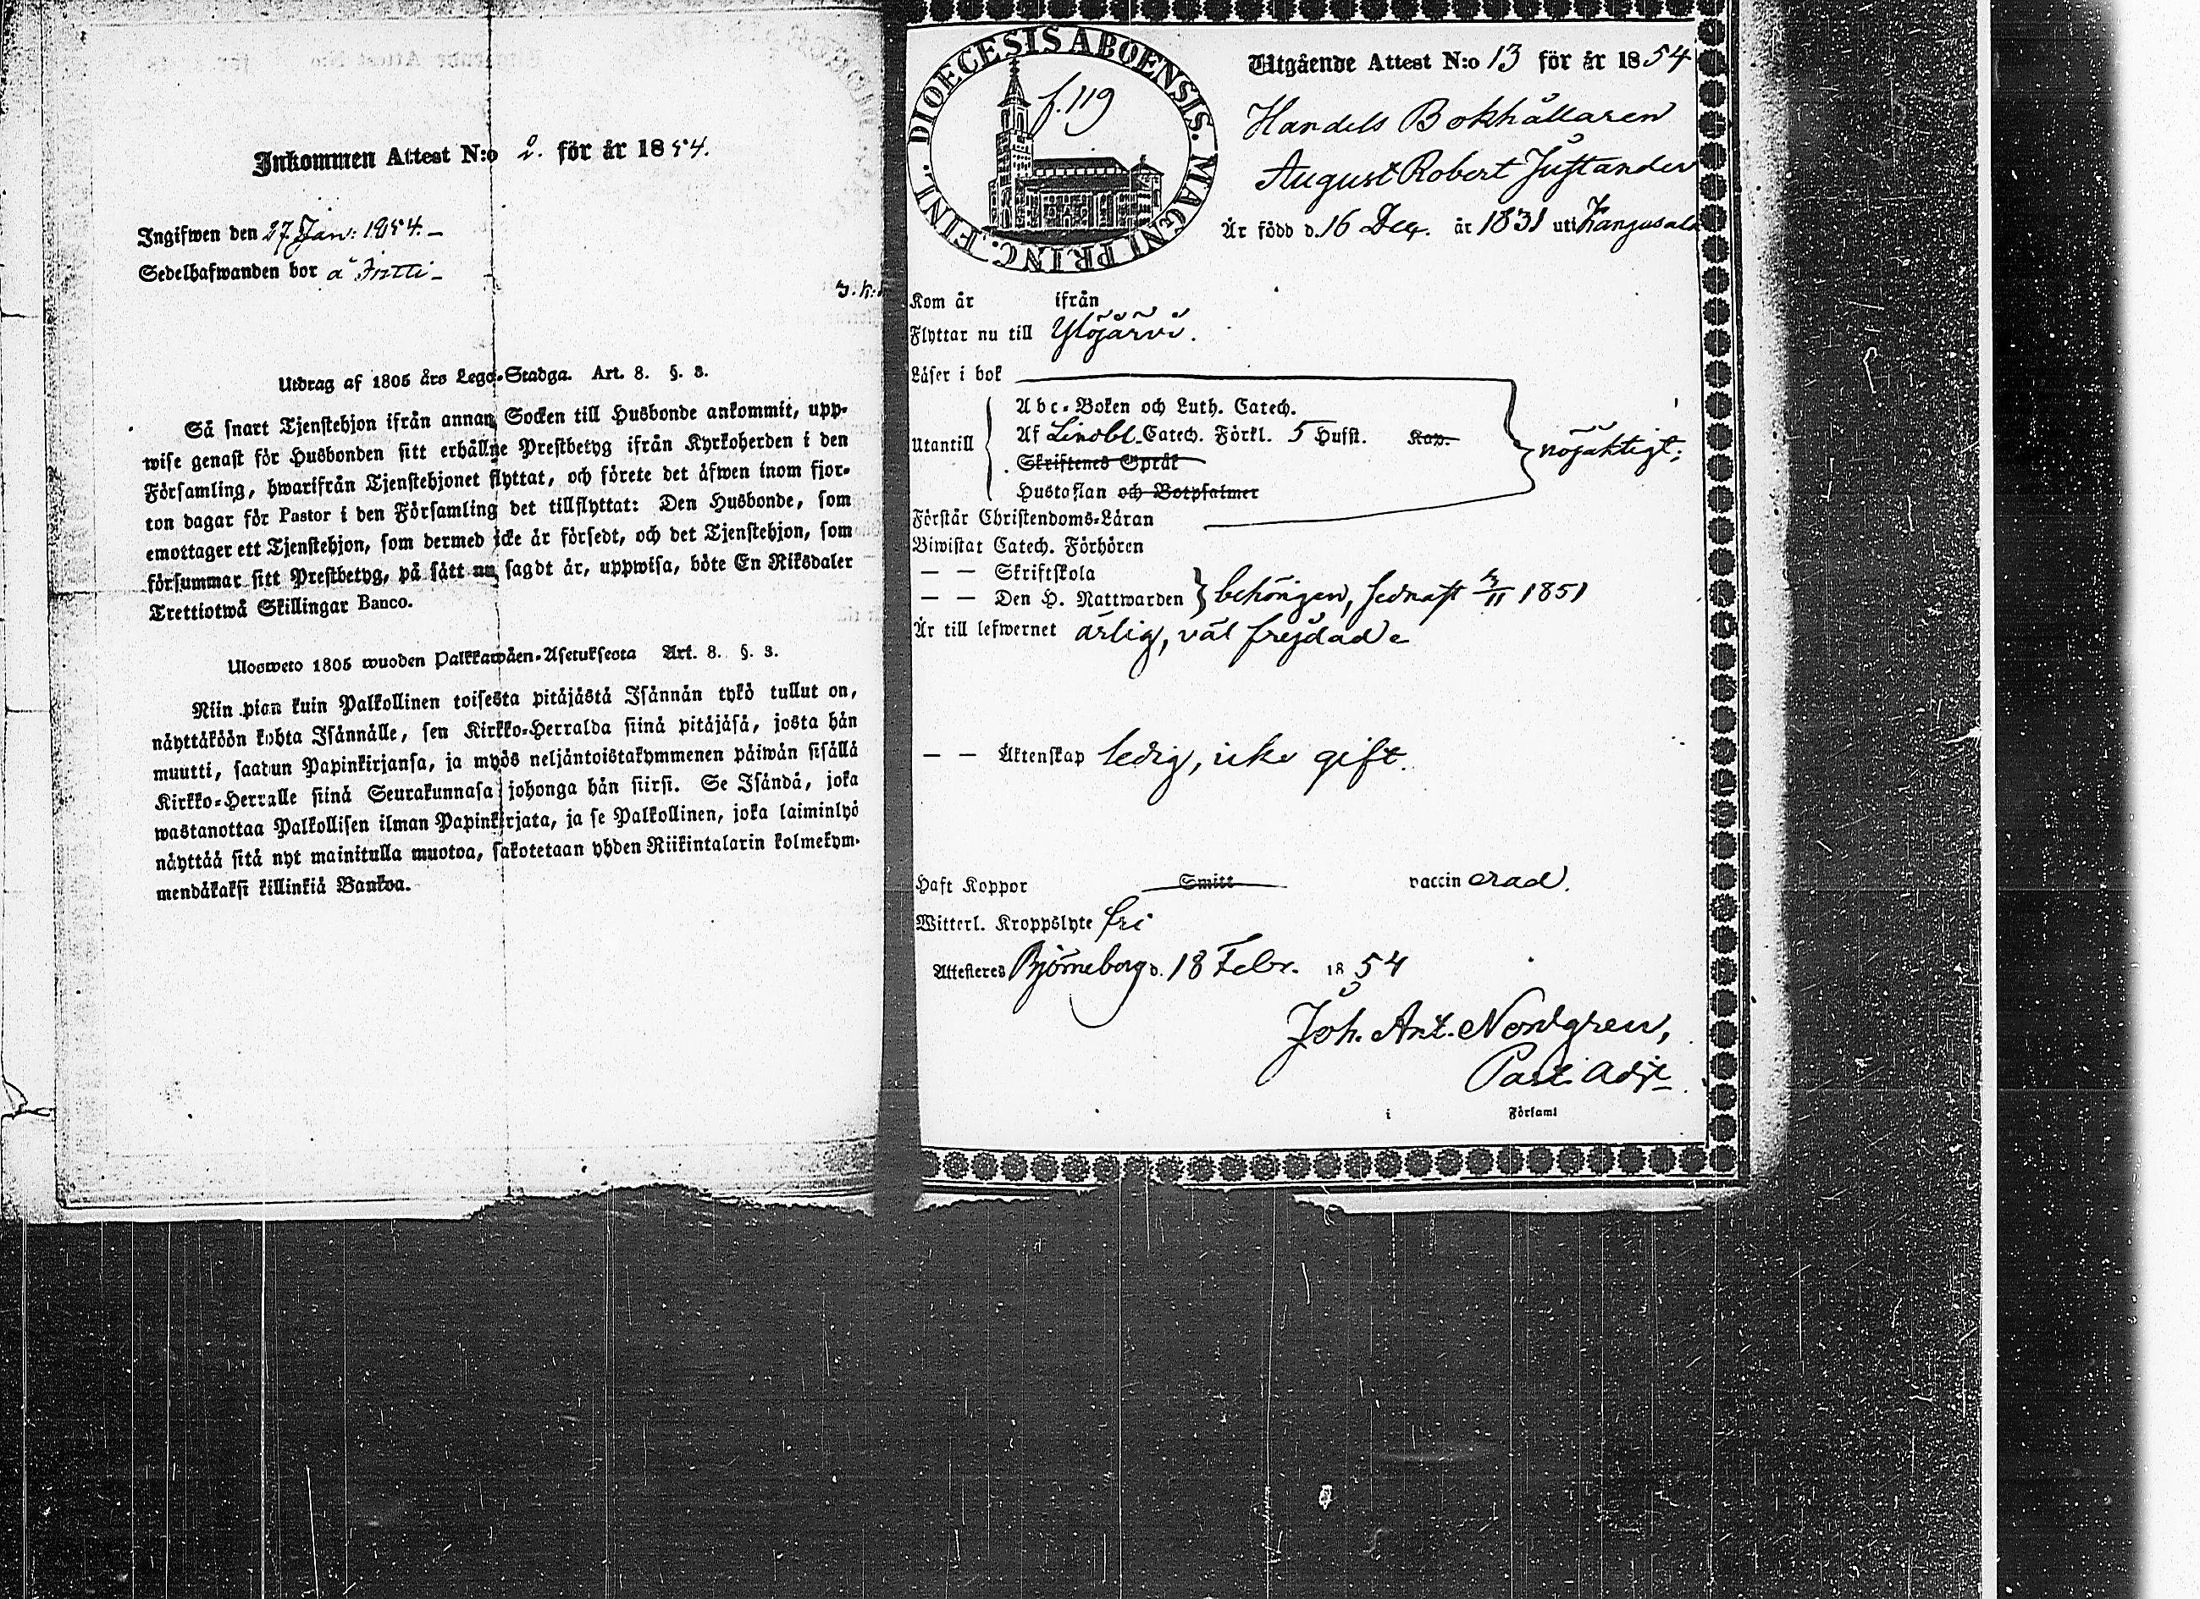 Inkommen Attest N:o 2. för år 1854.
Ingifwen den 27 Jan: 1854.
Sedelhafwanden bor å
Utdrag af 1805 års Lego-Stadga. Art. 8. §. 3.
Så snart Tjenstehjon ifrån annan Socken till Husbonde ankommit, upp-
wise genast för Husbonden sitt erhållne Prestbetyg ifrån Kyrkoherden i den
Församling, hwarifrån Tjenstehjonet flyttat, och förete det äfwen inom fjor-
ton dagar för Pastor i den Församling det tillflyttat: Den Husbonde, som
emottager ett Tjenstehjon, som dermed icke är försedt, och det Tjenstehjon, som
försummar sitt Prestbetyg, på sätt nu sagdt är, uppwisa, böte En Riksdaler
Trettiotwå Skillingar Banco.
Ulosweto 1805 wuoden Palkkawäen-Asetuksesta Art. 8. §. 3.
Niin pian kuin Palkollinen toisesta pitäjästä Isännän tykö tullut on,
näyttäköön kohta Isännälle, sen Kirkko-Herralda siinä pitäjäsä, josta hän
muutti, saadun Papinkirjansa, ja myös neljäntoistakymmenen päiwän sisällä
Kirkko-Herralle siinä Seurakunnasa johonga hän siirsi. Se Isändä, joka
wastanottaa Palkollisen ilman Papinkirjata, ja se Palkollinen, joka laiminlyö
näyttää sitä nyt mainitulla muotoa, sakotetaan yhden Riikintalarin kolmekym-
mendäkaksi killinkiä Bankoa.
DIOECESIS ABOENSIS. MAGNI PRINC. FINL.
f. 119
Utgående Attest N:o 13 för år 1854
Handels Bokhållaren
August Robert Justander
Är född d. 16 Dec. år 1831 uti Kangasala
Kom år ifrån
Flyttar nu till Ylöjärvi.
Läser i bok
Abc-Boken och Luth. Catech.
Utantill Af Lindbl. Catech. Förkl. 5 Hufst. Kap. nöjaktigt;
Skriftenes Språk
Hustaflan och Botpsalmer
Förstår Christendoms-Läran
Biwistat Catech. Förhören
— — Skriftskola
— — Den H. Nattwarden behörigen, sednast 1851
Är till lefwernet ärlig, väl frejdad
— — Äktenskap ledig, icke gift.
Haft Koppor Smitt vaccinerad.
Witterl. Kroppslyte fri
Attesteres Björneborg d. 18 Febr. 1854
Joh. Ant. Nordgren,
Past. Adj:
i Församl